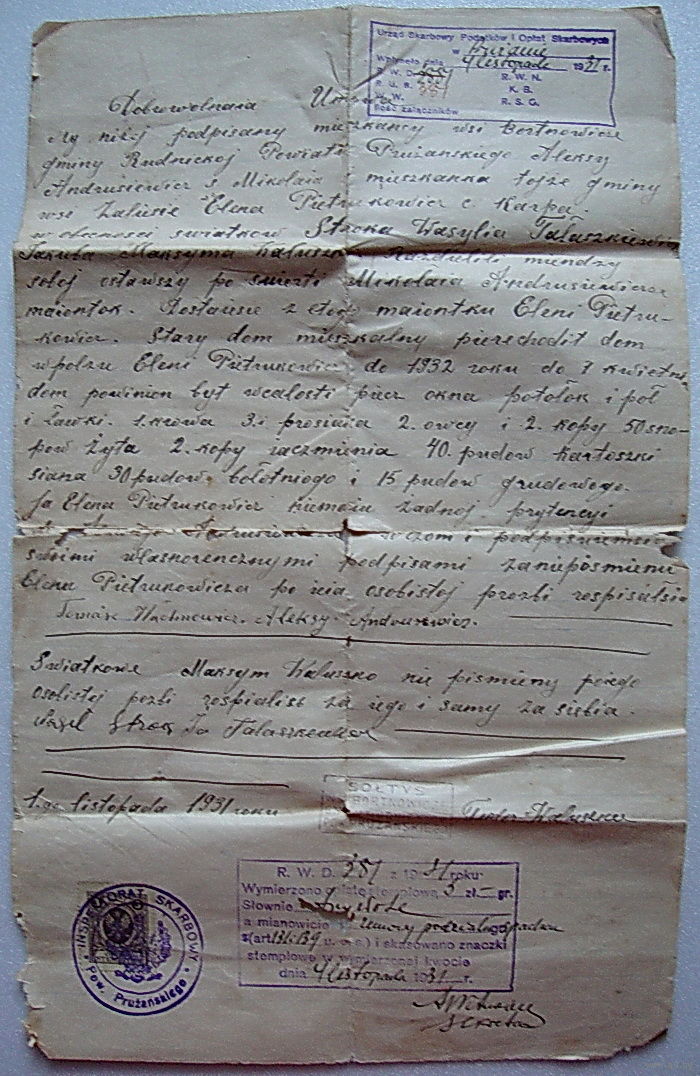 Urząd Skarbowy Podatków i Opłat Skarbowych
w Prużanie
Wpłynęło dnia 4 listopada 1931 r.
R. W. D. 351 R. W. N.
R. U. S. 351 K. S.
W. W. R. S. G.
Ilość załączników
Dobrowolnaia Umowa
My niżej podpisany mieszkancy wsi Bortnowicze
gminy Rudnickoj Powiatu Prużanskiego Aleksy
Andrusiewicz s. Mikolaia i mieszkanka tojże gminy
wsi Zalesie Elena Pietrukowicz c. Karpa.
w obecności swiatków Stroka Wasylia Tałaszkiewicza
Jakuba Maksyma Kałuszko Razdielili miendzy
soboj ostawszy po smierti Mikolaia Andrusiewicza
maiontok. Dostaiesie z etogo maiontku Eleni Pietru-
kowicz. Stary dom mieszkalny pierechodit dom
w polzu Eleni Pietrukowicz do 1932 roku do 7 kwietnia
dom powinien być wcałosti piecz okna potołok i poł
i Ławki. 1. krowa 3. i prosiaka 2. owcy i 2. kopy 50 sno-
pow żyta 2. kopy iaczmienia 40. pudow kartoszki
siana 30 pudow bołotniego i 15 pudow grudowego.
Ja Elena Pietrukowicz niemaiu żadnoj prytenzyi
w czom i podpisuiemsia
swoimi własnorencznymi podpisami zaniepismienu
Elenu Pietrukowicza po ieia osobistoj prozbi rospisałsia
Tomasz Aleksy Andrusiewicz.
Swiatkowe Maksym Kałuszko nie pismieny poiego
osobistoj prozbi rospialiś za iego i samy za siebia.
Strok Ja Talaszkewicz
1-go listopada 1931 roku
SOŁTYS
BORTNOWICZE
PRUŻAŃSKIEGO
Kałuszko
R. W. D. 351 z 1931 roku
Wymierzono opłatę stemplową 3 zł — gr.
Słownie trzy złote
a mianowicie od umowy podziału spadku
(art 136. 139 u. o. s.) i skasowano znaczki
stemplowe w wymierzonej kwocie
dnia 4 listopada 1931 r.
Sekretarz
INSPEKTORAT SKARBOWY
Pow. Prużańskiego